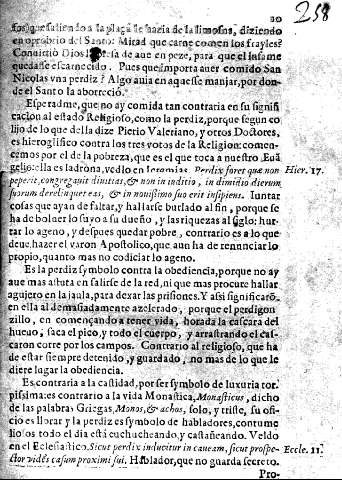 20
258
fos que saliendo a la plaça le hazia de la limosna, diziendo
en oprobrio del Santo: Mirad que carne comen los frayles?
Conuirtió Dios la presa de aue en peze, para que el infame
quedasse escarnecido. Pues que importa auer comido San
Nicolas vna perdiz? Algo auia en aquesse manjar, por don-
de el Santo la aborreció.
Esperadme, que no ay comida tan contraria en su signifi
cacion al estado Religioso, como la perdiz, porque segun co
lijo de lo que della dize Pierio Valeriano, y otros Doctores,
es hieroglifico contra los tres votos de la Religion: comen-
cemos por el de la pobreza, que es el que toca a nuestro Euã
gelio: ella es ladrona, vedlo en Ieremias. Perdix fouet quæ non Hier. 17.
peperit, congregauit diuitias, & non in iuditio, in dimidio dierum
suorum derelinquet eas, & in nouissimo suo erit insipiens. Iuntar
cosas que ayan de faltar, y hallarse burlado al fin, porque se
ha de boluer lo suyo a su dueño, y las riquezas al siglo: hur-
tar lo ageno, y despues quedar pobre, contrario es a lo que
deue hazer el varon Apostolico, que aun ha de renunciar lo
propio, quanto mas no codiciar lo ageno.
Es la perdiz symbolo contra la obediencia, porque no ay
aue mas astuta en salirse de la red, ni que mas procure hallar
agujero en la jaula, para dexar las prisiones. Y assi significarõ
en ella al demasiadamente azelerado, porque el perdigon
zillo, en començando a tener vida, horada la cascara del
hueuo, saca el pico, y todo el cuerpo, y arrastrando el cas-
caron corre por los campos. Contrario al religioso, que ha
de estar siempre detenido, y guardado, no mas de lo que le
diere lugar la obediencia.
Es contraria a la castidad, por ser symbolo de luxuria tor
pissima: es contrario a la vida Monastica, Monastico, dicho
de las palabras Griegas, Monos, & achos, solo, y triste, su ofi-
cio es llorar y la perdiz es symbolo de habladores, contume
liosos todo el dia está cuchucheando, y castañeando. Veldo
en el Eclesiastico. Sicut perdix inducitur in caueam, sicut prospe- Eccle. 11.
ctor vidēs casum proximi sui. Hablador, que no guarda secreto.
Pro-